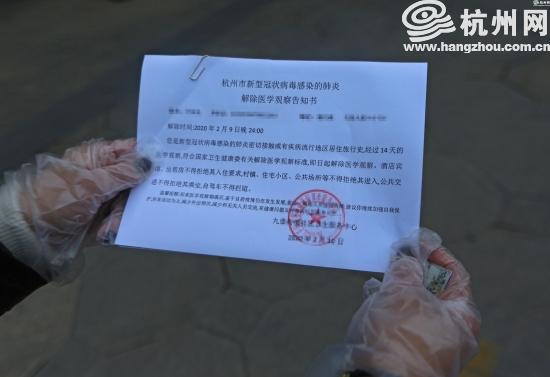 杭州网
www.hangzhou.com.cn
杭州市新型冠状病毒感染的肺炎
解除医学观察告知书
解除时间:2020 年 2 月 9 日晚 24:00
您是新型冠状病毒感染的肺炎密切接触或有疾病流行地区居住旅行史,经过 14 天的
医学观察,符合国家卫生健康委有关解除医学观察标准,即日起解除医学观察。酒店宾
馆、出租房不得拒绝其入住要求,村镇、住宅小区、公共场所等不得拒绝其进入,公共交
通不得拒绝其乘坐,自驾车不得拦阻。
温馨提醒:
卫生服务中心
2020 年 2 月 10 日